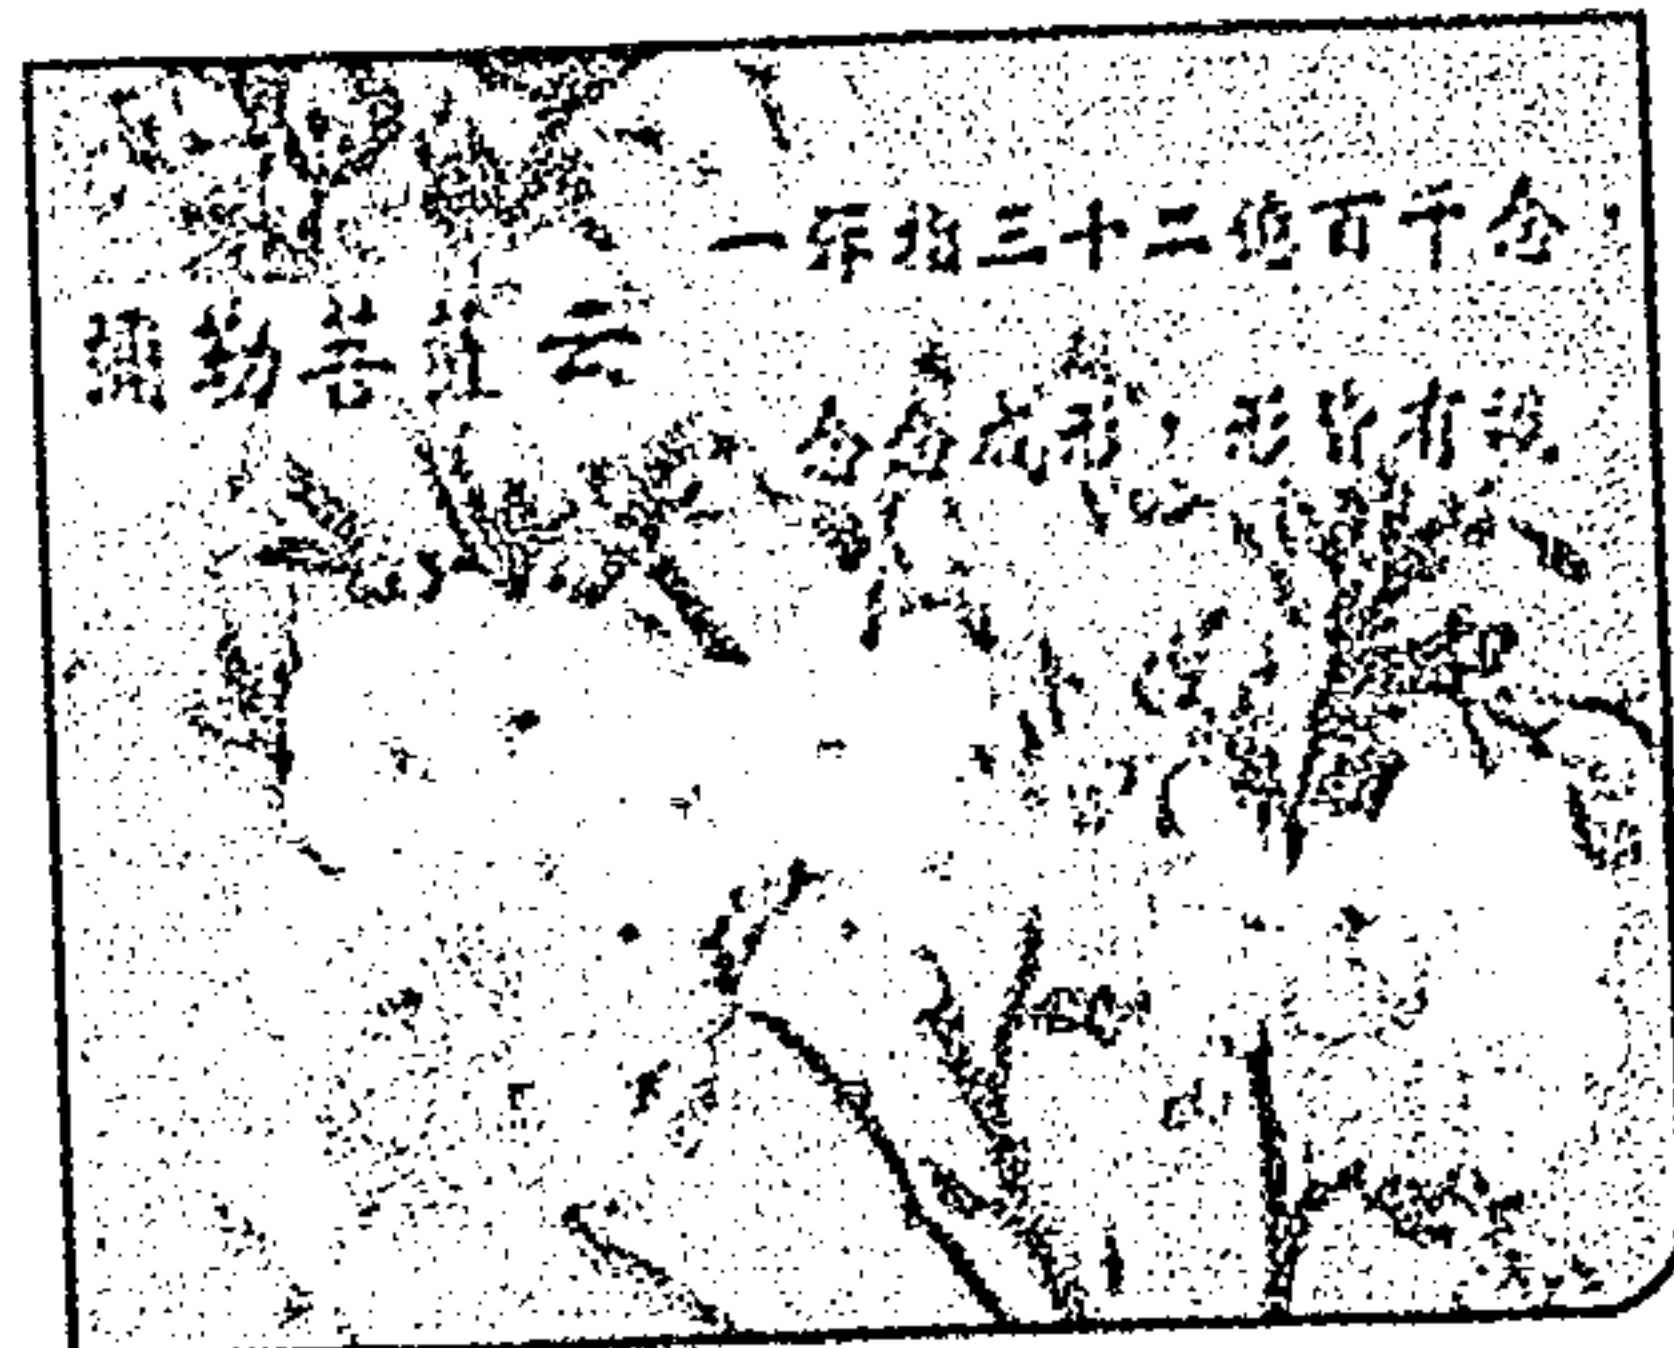 彌勒菩薩云
一彈指三十二億百千念,
念念成形,形皆有識